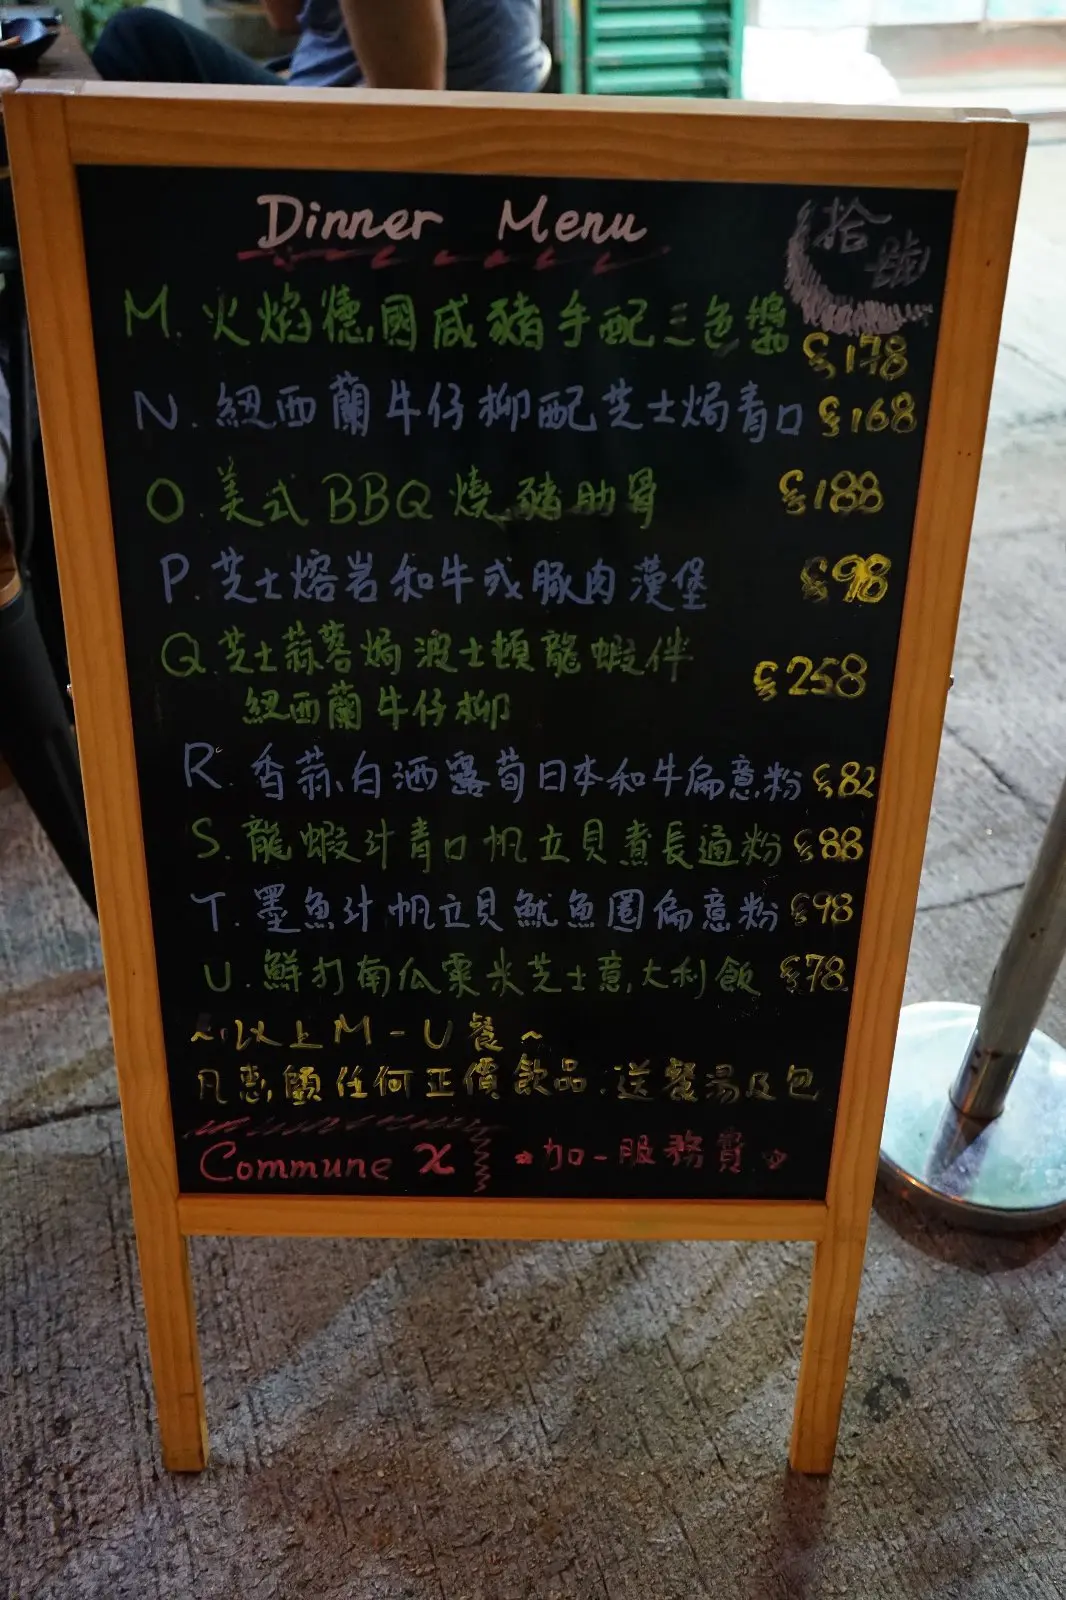 Dinner Menu
拾號
M. 火焰德國咸豬手配三色醬 $178
N. 紐西蘭牛仔柳配芝士焗青口 $168
O. 美式BBQ燒豬肋骨 $188
P. 芝士熔岩和牛或豚肉漢堡 $98
Q. 芝士蒜蓉焗波士頓龍蝦伴 $258
紐西蘭牛仔柳
R. 香蒜白酒露荀日本和牛扁意粉 $82
S. 龍蝦汁青口帆立貝煮長通粉 $88
T. 墨魚汁帆立貝魷魚圈扁意粉 $98
U. 鮮打南瓜粟米芝士意大利飯 $78
~以上M-U餐~
凡惠顧任何正價飲品:送餐湯及包
Commune X *加一服務費